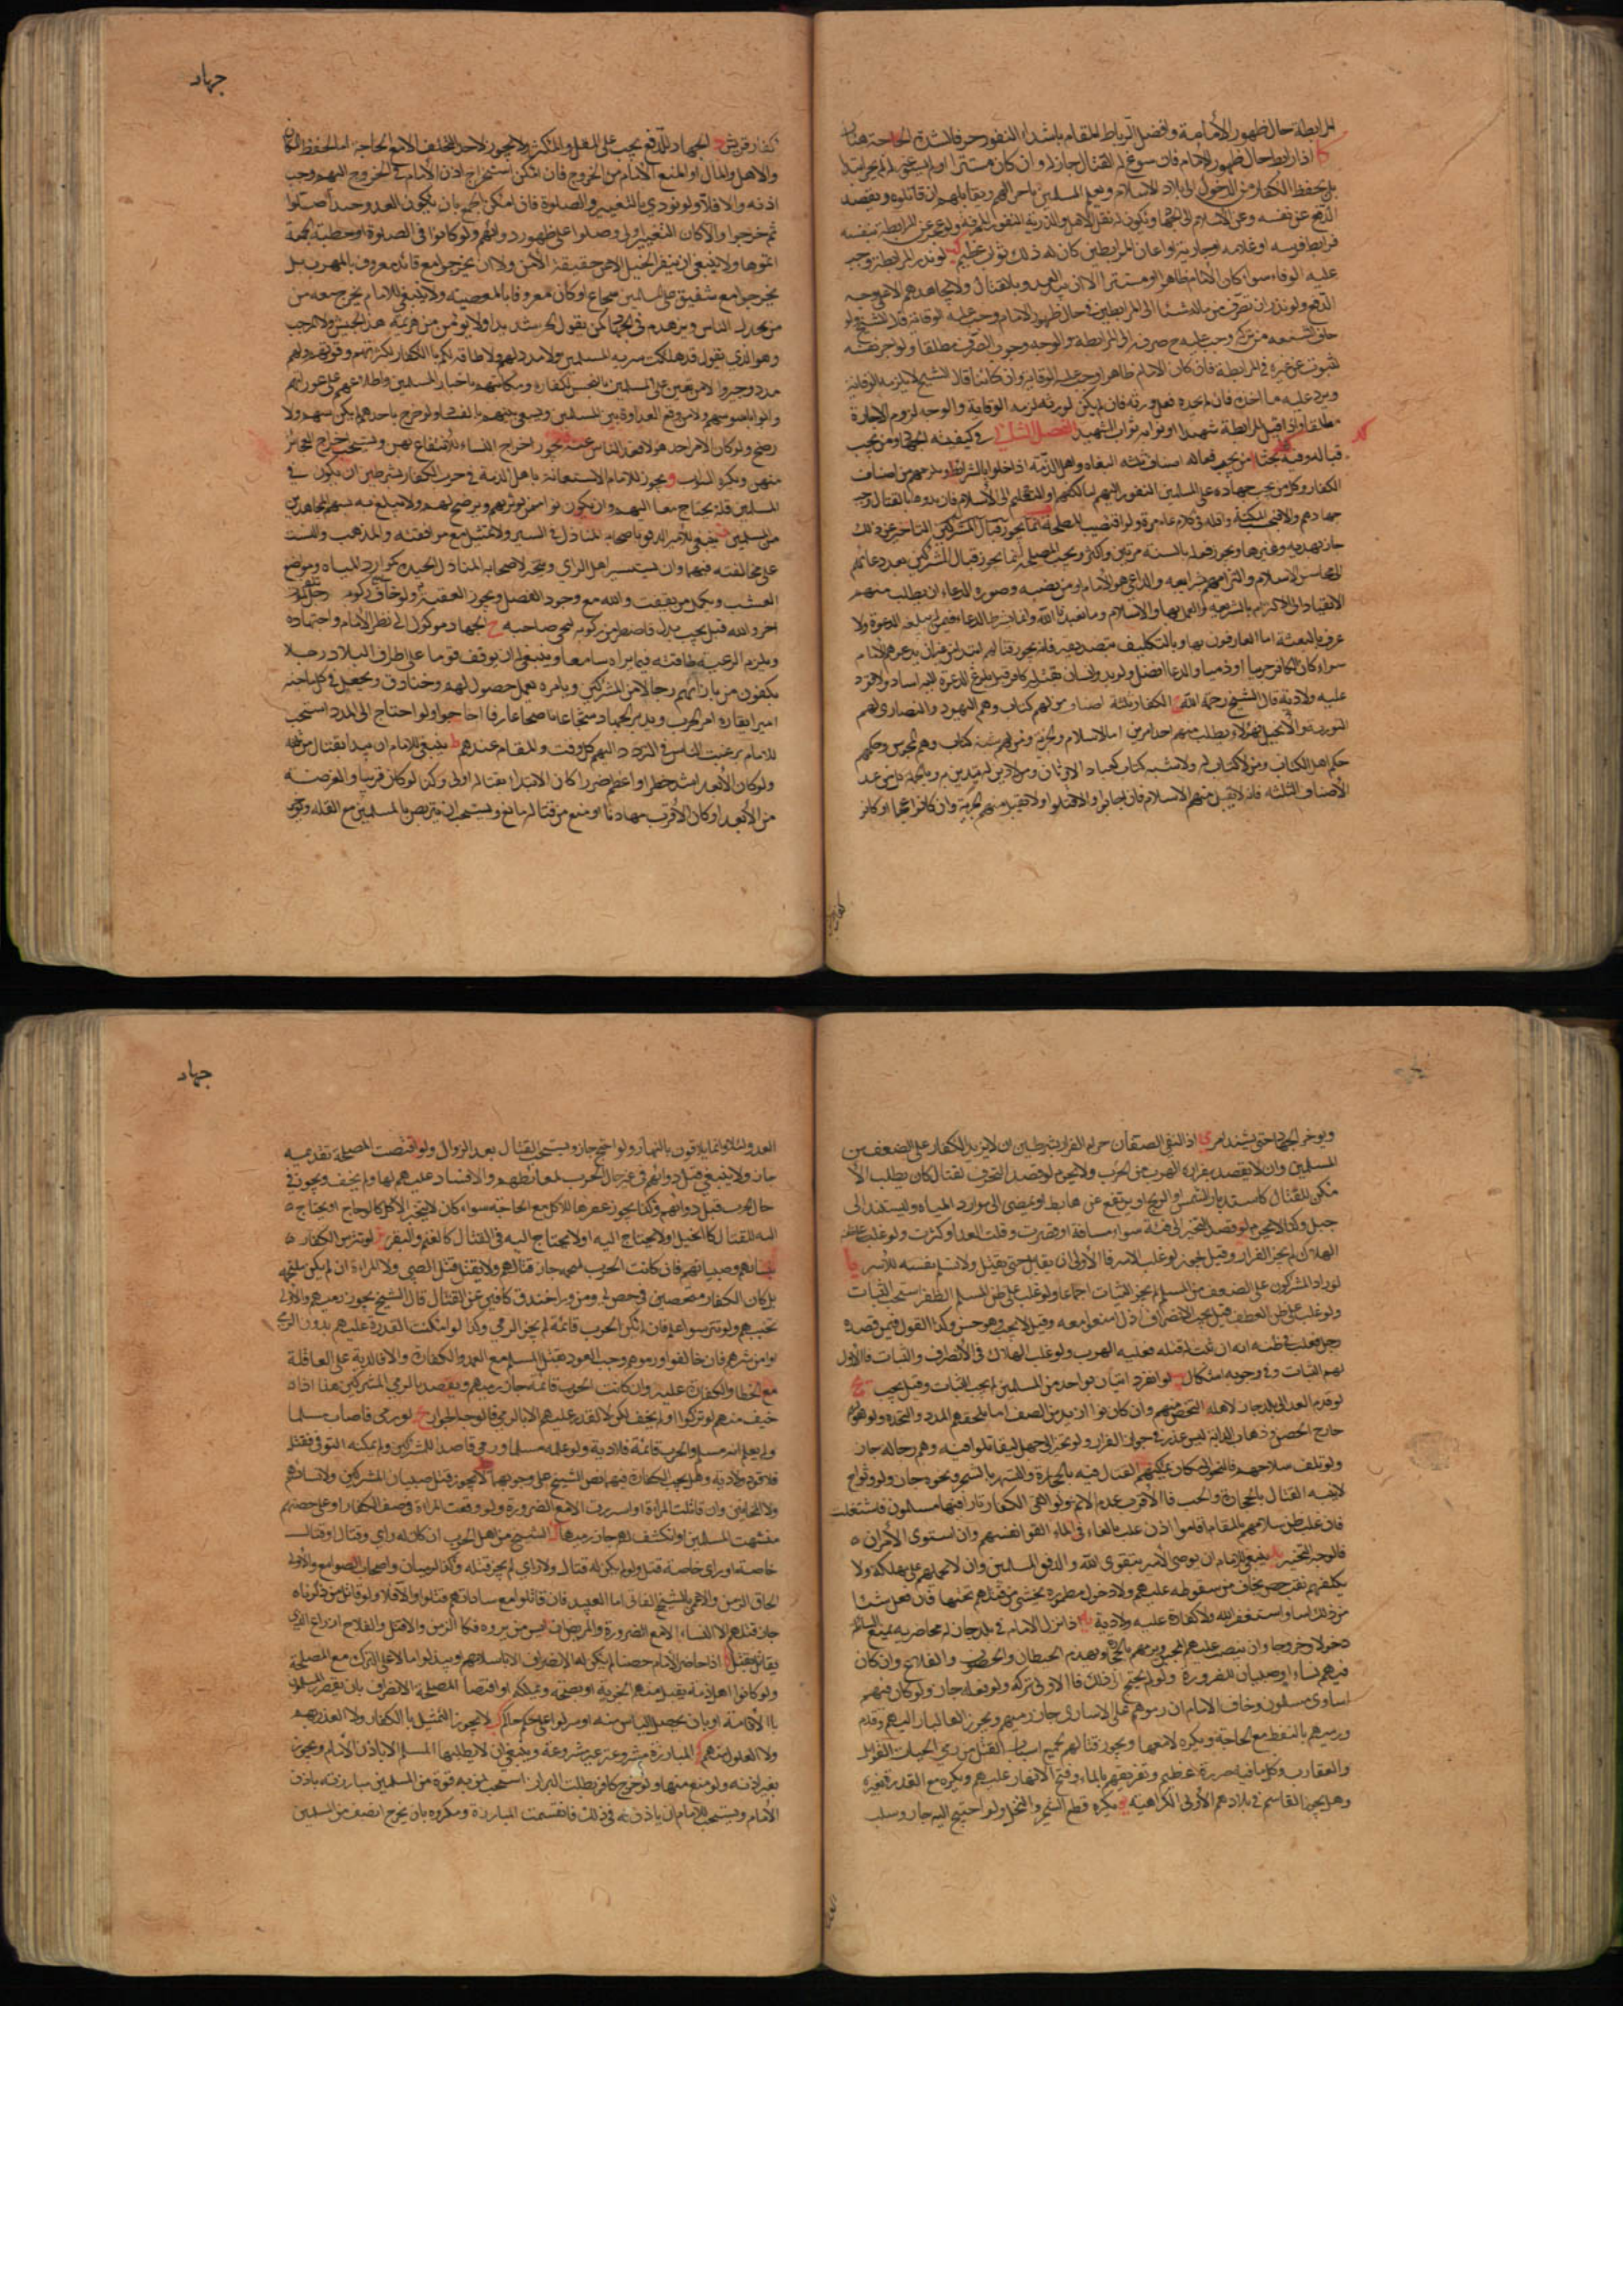 المرابطة حال ظهور الأمامة وافضل الرباط المقام باشد الثغور خوفا لشدة الحاجة هناك
كا اذا رابط حال ظهور الامام فان سوغ له القتال جاز له وان كان مستترا او لم يسوغ له لم يجز ابتدا
بل يحفظ الكفار من الدخول الى بلاد الاسلام ويعلم المسلمين باحوالهم ويقاتلهم ان قاتلوه ويقصد
الدفع عن نفسه وعن الاسلام لا الجهاد ويكون له نقل الاهل والذرية الى الثغور ولو عجز عن المرابطة بنفسه
فرابط فرسه او غلامه او جاريته او اعان المرابطين كان له في ذلك ثواب عظيم كب لو نذر المرابطة وجب
عليه الوفاء سواء كان الامام ظاهرا او مستترا الا انه لا يبدا العدو بالقتال ولا يجاهدهم الا على وجه
الدفع ولو نذر ان يصرف من ماله شيئا الى المرابطين في حال ظهور الامام وجب عليه الوفاء به
خاف الشنعة من تركه وجب عليه صرفه الى المرابطة والوجه وجوب الصرف مطلقا ولو اجر نفسه
لينوب عن غيره في المرابطة فان كان الامام ظاهرا وجب عليه الوفاء به وان كان قال الشيخ لا يلزمه الوفاء به
ويرد عليه ما اخذه فان لم يجده فعلى ورثته فان لم يكن له ورثة لزمه الوفاء به والوجه لزوم الاجارة
مطلقا واذا قتل المرابط شهيدا او ثوابه ثواب الشهيد الفصل الثالث في كيفية الجهاد ومن يجب
قتاله وفيه بحثا من يجب قتاله اصناف ثلثة البغاة واهل الذمة اذا اخلوا بالشرائط ومن عداهم من اصناف
الكفار وكل من يجب جهاده على المسلمين النفور اليهم اما لكفهم او لنقلهم الى الاسلام فان بدوا بالقتال وجب
جهادهم والا فبحسب المكنة واقله في كل عام مرة ولو اقتضت المصلحة التاخير عن ذلك
جاز بهدنة وغيرها ويجوز فعله بالسنة مرتين واكثر ويجب المصلحة انما يجوز قتال المشركين بعد دعائهم
الى محاسن الاسلام والتزامهم شرايعه والداعي هو الامام او من نصبه وصورة الدعاء ان يطلب منهم
الانقياد الى الالتزام بالشرعية والعمل بها والاسلام وما تعبدنا الله وانما يشترط الدعاء فيمن لم يبلغه الدعوة ولا
عرف بالبعثة اما العارفون بها وبالتكليف بتصديقه فانه يجوز قتالهم ابتداء من غير ان يدعوهم الامام
سواء كان الكافر حربيا او ذميا والدعا افضل ولو بدر انسان فقتل كافر قبل بلوغ الدعوة اليه اساء ولا قود
عليه ولا دية قال الشيخ رحمه الله الكفار ثلثة اصناف من لهم كتاب وهم اليهود والنصارى لهم
التورية والانجيل فهؤلاء يطلب منهم احد امرين اما الاسلام والجزية ومن لهم شبه كتاب وهم المجوس وحكمهم
حكم اهل الكتاب ومن لا كتاب له ولا شبه كتاب كعباد الاوثان ومن لا دين له يتدين به وبالجملة من عدا
الأصناف الثلثة فانه لا يقبل منهم الا الاسلام فان اجابوا والا قتلوا ولا تقبل منهم الجزية وان كانوا عجما او كانوا
جهاد
كفار قريش الجهاد للدفع يجب على المقل والمكثر ولا يجوز لاحد التخلف الا مع الحاجة اما لحفظ المكان
والاهل والمال او المنع الامام من الخروج فان امكن استخراج اذن الامام في الخروج اليهم وجب
اذنه والا فلا ولو نودي بالنفير والصلوة فان امكن الجمع بان يكون العدو وحدا صلوا
ثم خرجوا والا كان النفير اولى وصلوا على ظهور دوابهم ولو كانوا في الصلوة او خطبة الجمعة
اتموها ولا ينبغي ان ينفر الخيل الا من حقيقة الأمن ولا ان يخرجوا مع قائد معروف بالهرب بل
يخرجوا مع شفيق على المسلمين شجاع او كان معروفا بالمعصية ولا ينبغي للامام يخرج معه من
من يخذل الناس ويزهدهم في الجهاد كمن يقول الحر شديد او لا يؤمن من هزيمة هذا الجيش ولا المرجف
وهو الذي يقول قد هلكت سرية المسلمين ولا مدد لهم ولا طاقة لكم بالكفار لكثرتهم وقوتهم ولهم
مدد وخيروا ولا من يعين على المسلمين بالتجسس للكفار ومكاتبتهم باخبار المسلمين واطلاعهم على عوراتهم
وايواء جاسوسهم ولا من يوقع العداوة بين المسلمين ويسعى بينهم بالفساد ولو خرج باحدهم لم يكن سهم ولا
رضخ ولو كان الامر احد هؤلاء فقد الناس عنه يجوز اخراج النساء للانتفاع بهن ويستحب اخراج العجائز
منهن ويكره الشواب و يجوز للامام الاستعانة باهل الذمة في حرب الكفار بشرطين ان يكون في
المسلمين قلة يحتاج معها اليهم وان يكونوا ممن يوثق بهم ويرضخ لهم ولا يبلغ به سهم المجاهدين
من المسلمين ينبغي للأمير الرفق باصحابه في السير ولا يميل مع موافقته والمذهب والنسب
على مخالفته فيهما وان يستشير اهل الراي ويتخير لاصحابه المنازل الجيدة كموارد المياه ومواضع
العشب ويحمل من نفقت دابته مع وجود الفضل ويجوز العقبة ولو خاف
اخر دابته قيل يجب بذل فاضل مركوبه لينجي صاحبه ح الجهاد موكول الى نظر الامام واجتهاده
ويلزم الرعية طاعته فيما يراه سامعا وينبغي ان يوقف قوما على اطراف البلاد رجلا
يكفون من بازائهم رجلا من المشركين ويامره بعمل حصون لهم وخنادق ويجعل في كل ناحية
اميرا يقلده امر الحرب وتدبير الجهاد شجاعا ناصحا عارفا ولو احتاج الى المدد استحب
للامام ترغيب الناس في التردد اليهم كل وقت والمقام عندهم ط ينبغي للامام ان يبدا بقتال من يليه
ولو كان الأبعد اشد خطرا واعظم ضررا كان الابتداء بقتاله اولى وكذا لو كان قريبا والفرصة
من الأبعد او كان الأقرب مهادنا او منع من قتاله مانع ويستحب ان يتربص بالمسلمين مع القلة ويجوز
ويوخر الجهاد حتى يشتد امره ي اذا التقى الصفان حرم الفرار بشرطين ان لا يزيد الكفار على الضعف من
المسلمين وان لا يقصد بفراره الهرب من الحرب ولا يحرم لو قصد التحرف لقتال كان يطلب الأ
مكن للقتال كاستدبار الشمس او الريح او يرتفع عن هابط او يمضي الى موارد المياه او ليستند الى
جبل وكذا لا يحرم لو قصد التحيز الى فئة سواء مسافة او قصرت وقلت العدد او كثرت ولو غلب على ظنه
الهلاك لم يجز الفرار وقيل يجوز لو غلب الاسر فالأولى ان يقاتل حتى يقتل ولا يسلم نفسه للأسر يا
لو زاد المشركون على الضعف من المسلمين لم يجز الثبات اجماعا ولو غلب على ظن المسلم الظفر استحب الثبات
ولو غلب على ظن العطب قيل يجب الانصراف وقيل لا يجب وهو حسن وكذا القول فيمن قصده
رجل فغلب في ظنه انه ان ثبت له قتله فعليه الهرب ولو غلب الهلاك في الأنصراف والثبات فالأولى
لهم الثبات وفي وجوبه اشكال يب لو انفرد اثنان بواحد من المسلمين لم يجب الثبات وقيل يجب يج
لو قدم العدو الى بلد جاز لاهله التحصن منهم وان كانوا ازيد من الضعف اما يلحقهم المدد والنجدة ولو لقوهم
خارج الحصن وذهاب الدابة ليس عذرا في جواز الفرار ولو تحيز الى جبل ليقاتلوا فيه وهم رجالة جاز
ولو تلف سلاحهم فالتجوا الى مكان يمكنهم القتال فيه بالحجارة والتستر بالشجر ونحوه جاز ولو ولوا ح
لانه القتال بالحجارة والخشب فالاقرب عدم الاثم ولو القى الكفار نارا فيها مسلمون فاشتعلت
فان غلب ظن سلامتهم بالمقام اقاموا اذن غلب بالقاء في الماء القوا نفسهم وان استوى الأمران
فالوجه التخيير يد ينبغي للامام ان يوصي الأمير بتقوى الله والرفق بالمسلمين وان لا يحملهم على مهلكة ولا
يكلفهم نقب حصن يخاف من سقوطه عليهم ولا دخول مطمورة يخشى من قتلهم تحتها فان فعل شيئا
من ذلك اساء واستغفر الله ولا كفارة عليه ولا دية يه اذا نزل الامام في بلد جاز له محاصرته بمنع السائلة
دخولا وخروجا وان ينصب عليهم المنجنيق ويرميهم بالحجارة ويهدم الحيطان والحصون والقلاع وان كان
فيهم نساء او صبيان للضرورة ولو لم يحتج الى ذلك فالاولى تركه ولو فعله جاز ولو كان فيهم
اسارى مسلمون وخاف الامام ان رموهم على الاسارى جاز رميهم ويجوز القاء النار اليهم وقذفهم
ورميهم بالنفط مع الحاجة ويكره لا معها ويجوز قتالهم بجميع اسباب القتل من رمي الحيات القواتل
والعقارب وكل ما فيه ضرر عظيم وتغريقهم بالماء وفتح الانهار عليهم ويكره مع القدرة بغيره
وهل يجوز القاء السم في بلادهم الأولى الكراهية يو يكره قطع الشجر والنخل ولو احتيج اليه جاز وسلب
جهاد
العدو ليلا وانما يلاقون بالنهار ولو احتيج جاز ويستحب القتال بعد الزوال ولو اقتضت المصلحة تقديمه
جاز ولا ينبغي قتل دوابهم في غير حال الحرب لمغائظتهم والافساد عليهم لها ولم يخف ويجوز في
حال الحرب قتل دوابهم وكذا يجوز عقرها للاكل مع الحاجة سواء كان لا يتخذ الا للاكل كالدجاج او يحتاج
اليه للقتال كالخيل او لا يحتاج اليه في القتال كالغنم والبقر لو تترس الكفار
بنسائهم وصبيانهم فان كانت الحرب ملتحمة جاز قتالهم ولا يقصد قتل الصبي ولا المراءة ان لم يكن ملتحمة
بل كان الكفار متحصنين في حصن او من وراء خندق كافين عن القتال قال الشيخ يجوز رميهم والأولى
تجنبهم ولو تترسوا بمسلم فان لم تكن الحرب قائمة لم يجز الرمي وكذا لو امكنت القدرة عليهم بدون الرمي
او امن شرهم فان خالفوا ورموهم وجب القود بقتل المسلم مع العمد والكفارة والا فالدية على العاقلة
مع الخطا والكفارة عليه وان كانت الحرب قائمة جاز رميهم ويقصد بالرمي المشركين هذا اذا
خيف منهم لو تركوا ولو لم يخف لكن لا يقدر عليهم الا بالرمي فالوجه الجواز لو رمى فاصاب مسلما
ولم يعلم انه مسلم والحرب قائمة فلا دية ولو علمه مسلما ورمى قاصدا للمشركين ولم يمكنه التوقي فقتله
فلا قود ولا دية وهل يجب الكفارة فيهما نص الشيخ على وجوبهما لا يجوز قتل صبيان المشركين ولا نسائهم
ولا المجانين وان قاتلت المراءة او اسرت الا مع الضرورة ولو وقفت المراءة في صف الكفار او على حصنهم
فشتمت المسلمين او تكشفت لهم جاز رميها الشيخ من اهل الحرب ان كان له راي وقتال او قتال
خاصة او راي خاصة قتل ولو لم يكن له قتال ولا راي لم يجز قتله وكذا الرهبان واصحاب الصوامع والأولى
الحاق الزمن والاعمى بالشيخ الفاني اما العبيد فان قاتلوا مع ساداتهم قتلوا والا فلا ولو قاتل من ذكرناه
جاز قتلهم الا النساء الا مع الضرورة والمريض ان ايس من برؤه فكالزمن والا قتل والفلاح الزراع الذي
يقاتل يقتل اذا حاصر الامام حصنا لم يكن له الانصراف الا باسلامهم او يبذلوا مالا على الترك مع المصلحة
ولو كانوا اهل ذمة يقبل منهم الجزية او يفتحه ويملكه او اقتضا المصلحة الانصراف بان يضر بالمسلمين
بالأقامة او بان يحصل الياس منه او ينزلوا على حكم حاكم لا يجوز التمثيل بالكفار ولا الغدر بهم
ولا الغلول منهم المبارزة مشروعة غير مشروعة وينبغي ان لا يطلبها المسلم الا باذن الامام ويجوز
بغير اذنه ولو منع منها ولو خرج كافر يطلب البراز استحب لمن به قوة من المسلمين مبارزته باذن
الأمام ويستحب للامام ان ياذن له في ذلك فانقسمت المبارزة ومكروه بان يخرج الضعيف من المسلمين